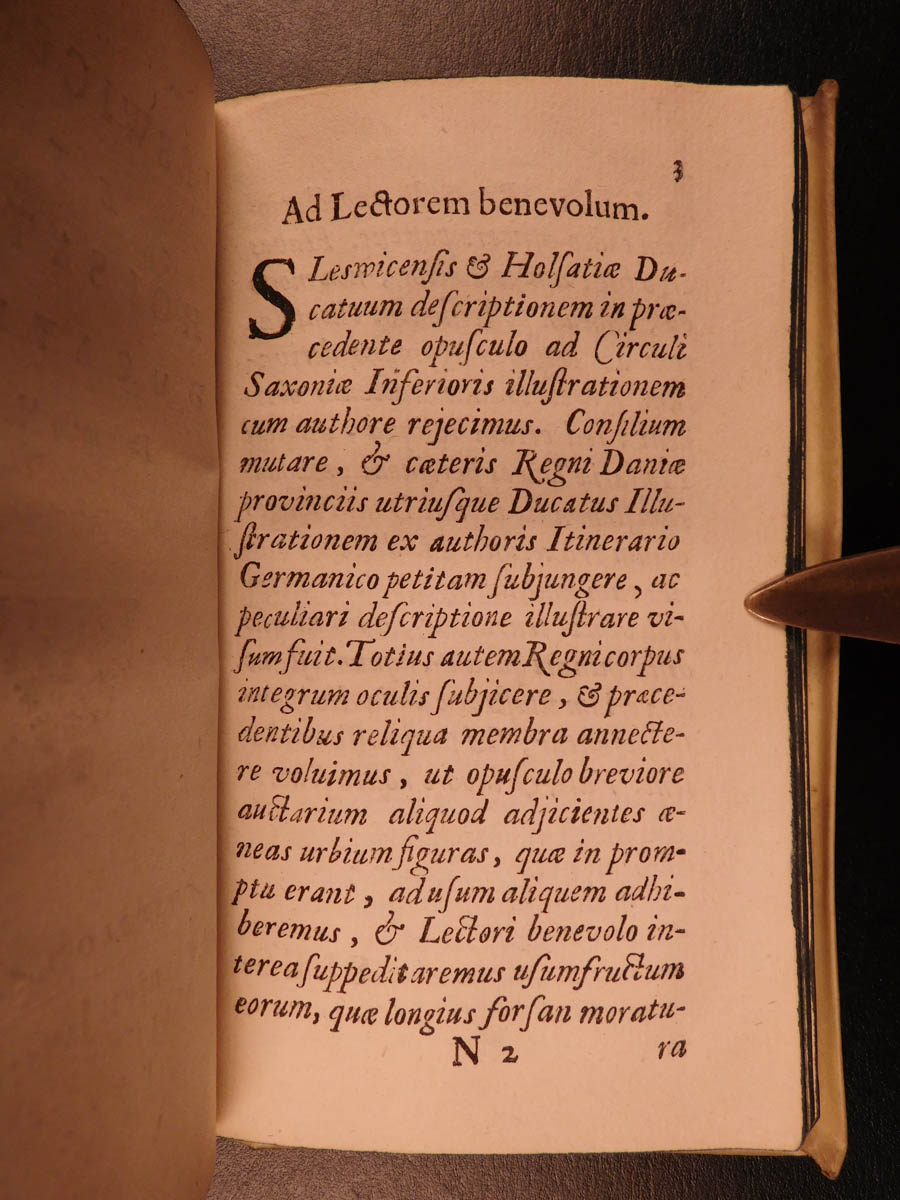 3
Ad Lectorem benevolum.
SLeswicensis & Holsatiæ Du-
catuum descriptionem in præ-
cedente opusculo ad Circuli
Saxoniæ Inferioris illustrationem
cum authore rejecimus. Consilium
mutare, & cæteris Regni Daniæ
provinciis utriusque Ducatus Illu-
strationem ex authoris Itinerario
Germanico petitam subjungere, ac
peculiari descriptione illustrare vi-
sum fuit. Totius autem Regni corpus
integrum oculis subjicere, & præce-
dentibus reliqua membra annecte-
re voluimus, ut opusculo breviore
auctarium aliquod adjicientes æ-
neas urbium figuras, quæ in prom-
ptu erant, ad usum aliquem adhi-
beremus, & Lectori benevolo in-
terea suppeditaremus usumfructum
eorum, quæ longius forsan moratu-
N 2 ra